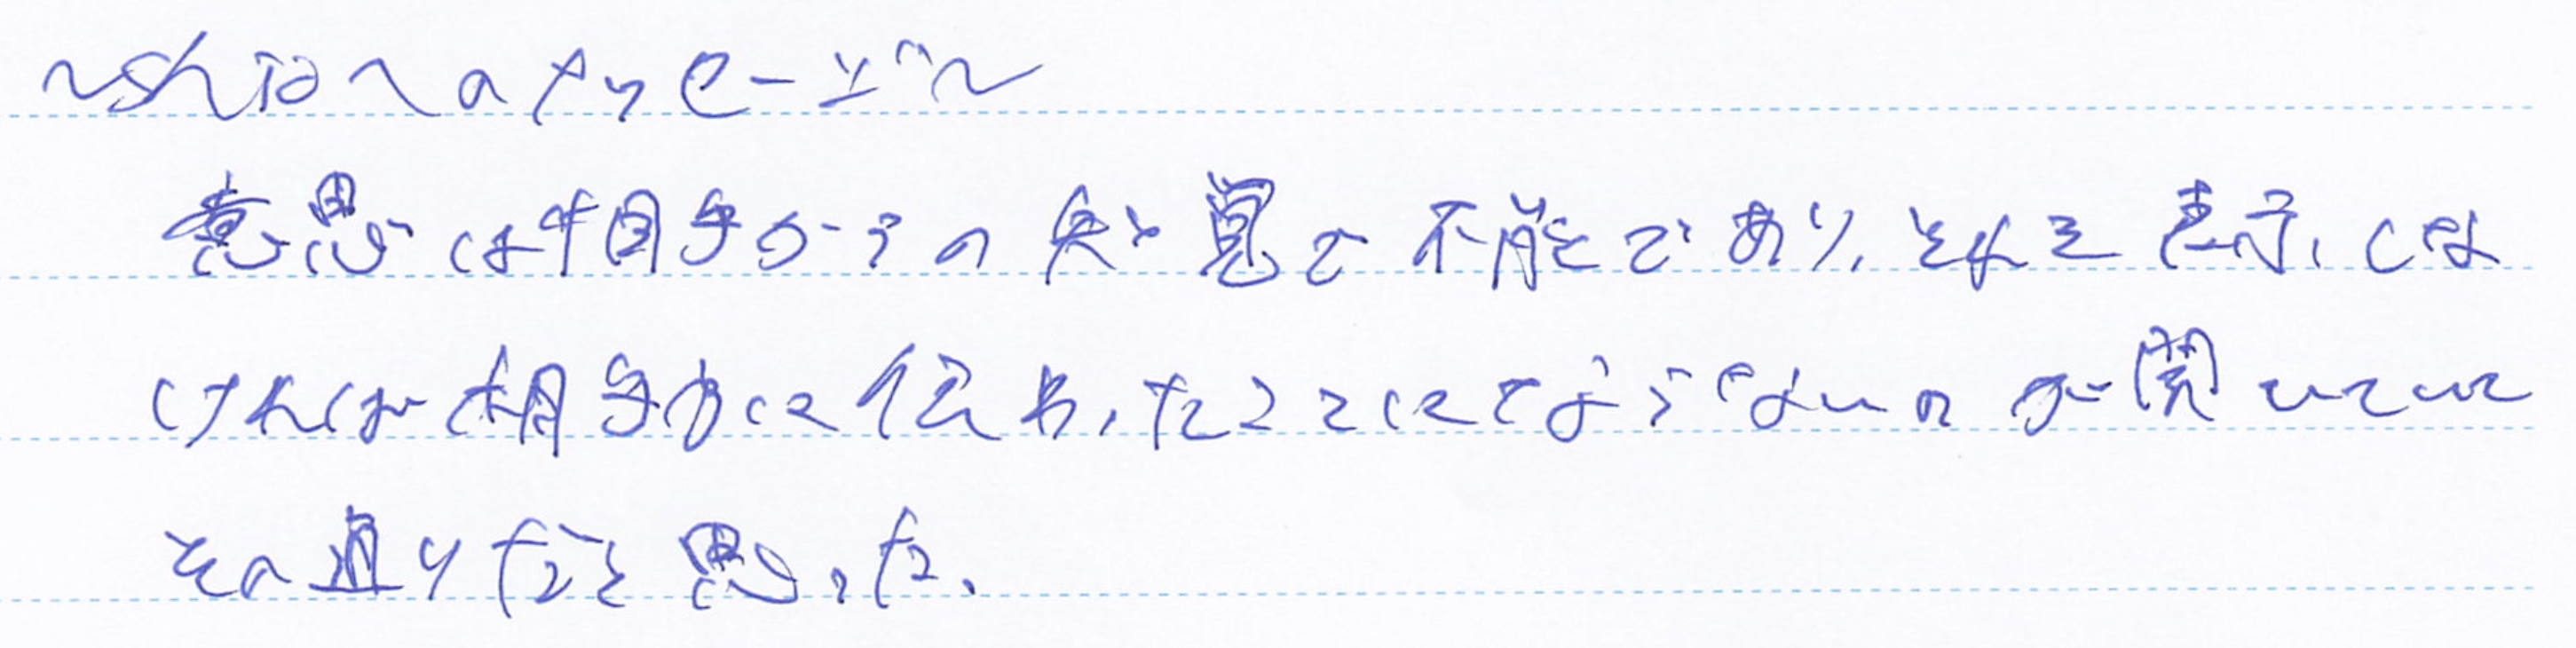 〜shioへのメッセージ〜
意思は相手からの知覚で不能であり、それを表示しな
ければ相手方に伝わったことにてならないのが聞いていて
その通りだと思った。